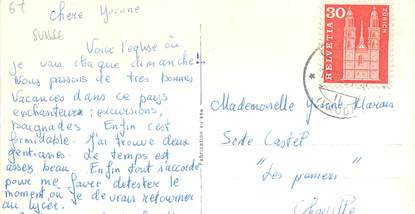 67
Chere Yvonne
SUISSE
Voici l'eglise où
je vais chaque dimanche
Nous passons de tres bonnes
Vacances dans ce pays
enchanteur : excursions,
baignades Enfin c'est
formidable. J'ai trouvé deux
gentianes. Le temps est
assez beau. Enfin tout s'accorde
pour me faire detester le
moment où je devrais retourner
au lycée.
Fabrication suisse
30
HELVETIA
ZÜRICH
Mademoiselle Yvonne
"Les pruniers"